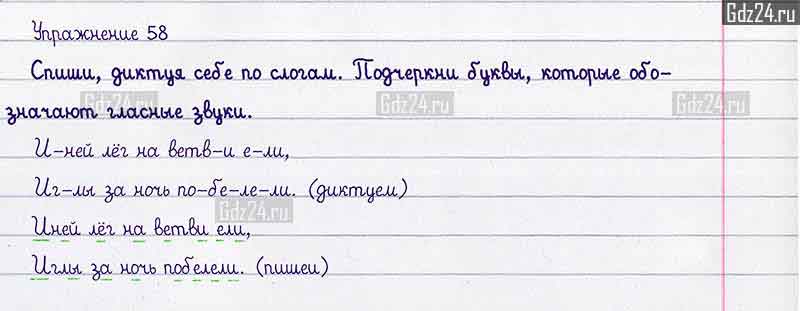 Gdz24.ru
Упражнение 58
Спиши, диктуя себе по слогам. Подчеркни буквы, которые обо-
Gdz24.ru Gdz24.ru Gdz24.ru
значают гласные звуки.
И-ней лёг на ветв-и е-ли,
Иг-лы за ночь по-бе-ле-ли. (диктуем)
Gdz24.ru
Иней лёг на ветви ели,
Иглы за ночь побелели. (пишеи)